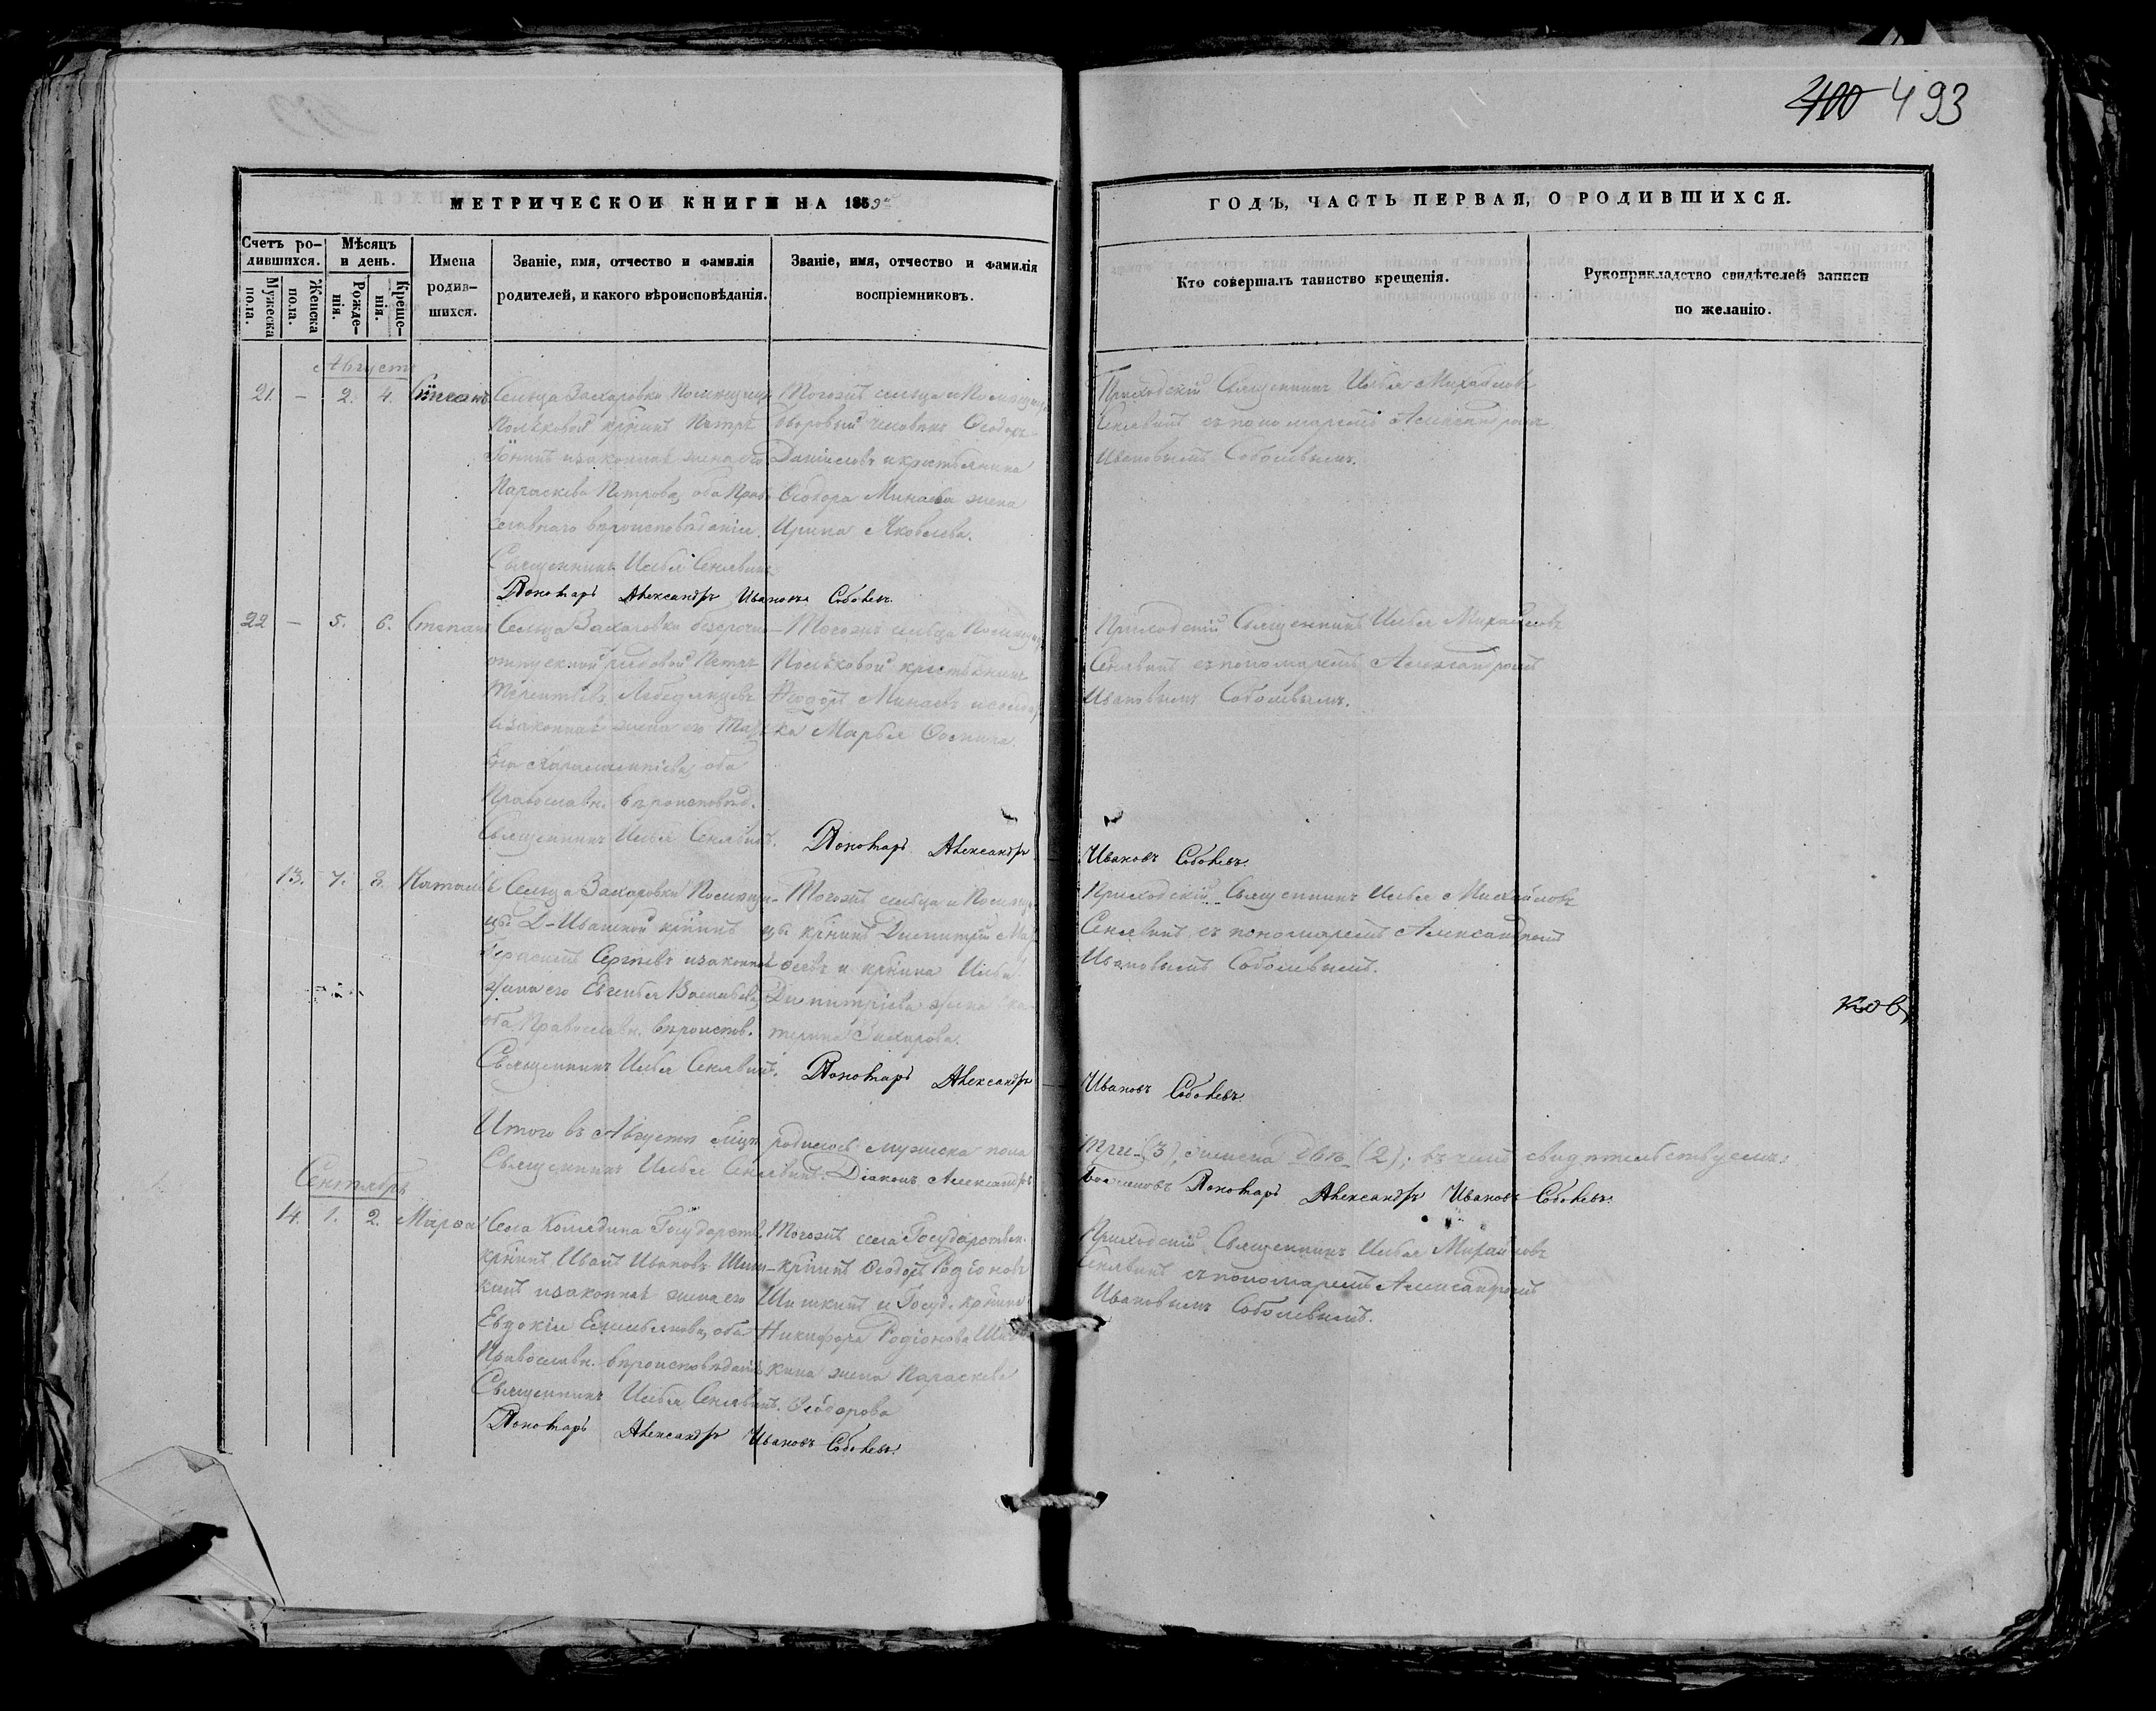 400 493
МЕТРИЧЕСКОЙ КНИГИ НА 1859й
ГОДЪ, ЧАСТЬ ПЕРВАЯ, О РОДИВШИХСЯ.
Счетъ ро-
дившихся.
Мужеска
пола.
Женска
пола.
Мѣсяцъ
и день.
Рожде-
нія.
Креще-
нія.
Имена
родив-
шихся.
Званіе, имя, отчество и фамилія
родителей, и какого вѣроисповѣданія.
Званіе, имя, отчество и фамилія
воспріемниковъ.
Кто совершалъ таинство крещенія.
Рукоприкладство свидѣтелей записи
по желанію.
Августъ
21. - 2. 4.
Сельца Захаровки Помѣщицы
Поляковой крѣнинъ Петръ
изаконная жена его
Параскева Петрова, оба Право-
славнаго вѣроисповѣданія.
Священникъ Илья Сенявинъ
Пономарь Александръ Ивановъ Соболевъ.
Тогожъ сельца и Помѣщицы
дворовый человѣкъ Ѳеодоръ
Даніиловъ и крестьянина
Ѳеодора Минаева жена
Ирина Яковлева.
Приходскій Священникъ Илья Михайловъ
Сенявинъ съ пономаремъ Александромъ
Ивановымъ Соболевымъ.
22 - 5. 6. Степанъ
Сельца Захаровки безсрочно-
отпускной рядовой Петръ
Терентьевъ
изаконная жена его
оба
Православн. вѣроисповѣд.
Священникъ Илья Сенявинъ.
Тогожъ сельца Помѣщицы
Поляковой крестьянинъ
Ѳеодоръ Минаевъ и солдат-
ка Марья
Пономарь Александръ Ивановъ Соболевъ.
Приходскій Священникъ Илья Михайловъ
Сенявинъ съ пономаремъ Александромъ
Ивановымъ Соболевымъ.
13. 7. 8. Наталья
Сельца Захаровки Помѣщи-
цы крѣнинъ
Герасимъ Сергѣевъ изаконная
жена его Евгенья Васильева,
оба Православн. вѣроисповѣд.
Священникъ Илья Сенявинъ.
Тогожъ сельца и Помѣщи-
цы крѣнинъ Димитрій
и крѣнина Ильи
Димитріева жена Ека-
терина Захарова.
Пономарь Александръ Ивановъ Соболевъ.
Приходскій Священникъ Илья Михайловъ
Сенявинъ съ пономаремъ Александромъ
Ивановымъ Соболевымъ.
ков
Итого въ Августѣ мцѣ родилось мужеска пола три (3), женска двѣ (2); въ чемъ свидѣтельствуемъ:
Священникъ Илья Сенявинъ. Діаконъ Александръ Пономарь Александръ Ивановъ Соболевъ.
Сентябрь
14. 1. 2. Марѳа
Села Государств.
крѣнинъ Иванъ Ивановъ Шиш-
кинъ изаконная жена его
Евдокія Емельянова, оба
Православн. вѣроисповѣданія
Священникъ Илья Сенявинъ.
Пономарь Александръ Ивановъ Соболевъ.
Тогожъ села Государствен.
крѣнинъ Ѳеодоръ Родіоновъ
Шишкинъ и Госуд. крѣнина
Никифора Родіонова Шиш-
кина жена Параскева
Ѳеодорова
Приходскій Священникъ Илья Михайловъ
Сенявинъ съ пономаремъ Александромъ
Ивановымъ Соболевымъ.